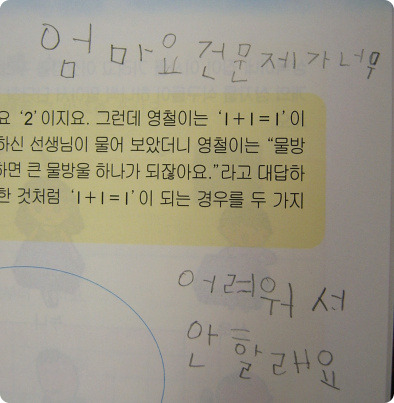 엄마요건문제가너무
요 '2'이지요. 그런데 영철이는 '1+1=1'이
하신 선생님이 물어 보았더니 영철이는 “물방
하면 큰 물방울 하나가 되잖아요.”라고 대답하
한 것처럼 '1+1=1'이 되는 경우를 두 가지
어려워서
안할래요